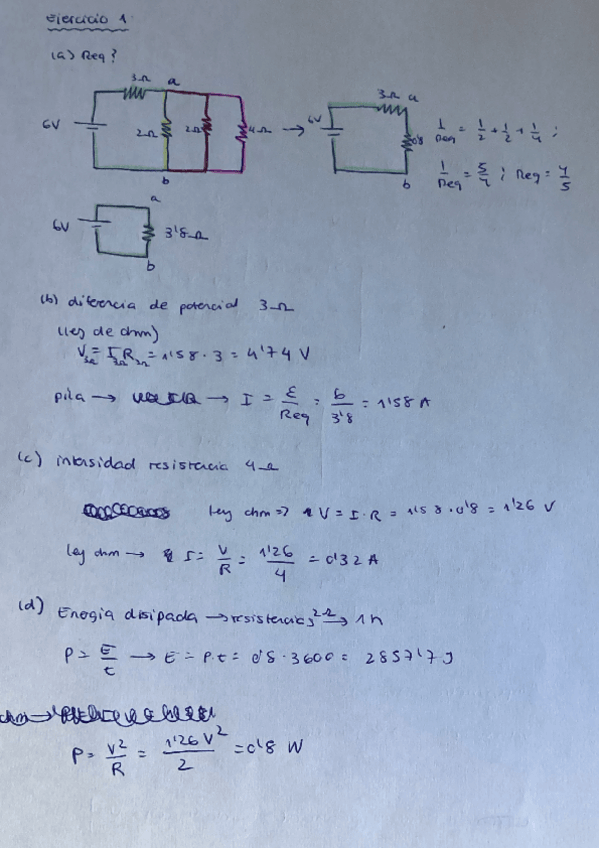 Ejercicio 1
(a) Req?
3Ω a
6V 2Ω 2Ω 4Ω →
b
6V 3Ω a
0'8
b
1/Req = 1/2 + 1/2 + 1/4 ;
1/Req = 5/4 ; Req = 4/5
a
6V 3'8Ω
b
(b) diferencia de potencial 3Ω
(ley de ohm)
V3Ω = I3Ω R3Ω = 1'58 · 3 = 4'74 V
pila → → I = ε/Req = 6/3'8 = 1'58 A
(c) intensidad resistencia 4Ω
ley ohm => V = I · R = 1'58 · 0'8 = 1'26 V
ley ohm → I = V/R = 1'26/4 = 0'32 A
(d) Energia disipada → resistencias 2Ω → 1h
P = E/t → E = P·t = 0'8 · 3600 = 2857'7 J
ohm →
P = V²/R = 1'26 V²/2 = 0'8 W